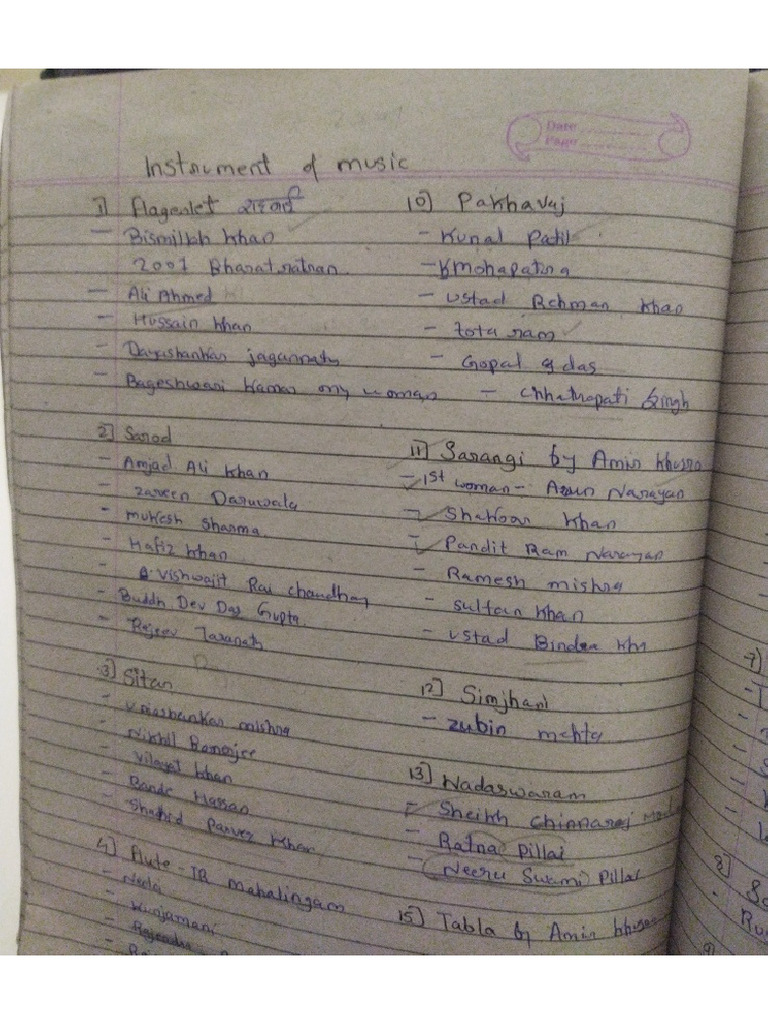 Date
Page
Instrument of music
1) Flagenlet शहनाई
- Bismillah khan
2001 Bharat ratnan
- Ali Ahmed
- Hussain khan
- Dayashankar jagannath
- Bageshwari kamar only woman
2) Sarod
- Amjad Ali khan
- zareen Daruwala
- mukesh sharma
- Hafiz khan
Vishwajit Rai chaudhary
- Buddh Dev Das Gupta
- Rajeev Taranath
3) Sitar
- Umashankar mishra
- Nikhil Banerjee
- Vilayat khan
- Bande Hassan
- Shahid Parvez khan
4) Flute - TR Mahalingam
- Neela
- Kunjamani
- Rajendra
10) Pakhavaj
- Kunal Patil
- K mohapatra
- Ustad Rehman khan
- tota ram
- Gopal das
- Chhatrapati Singh
11) Sarangi by Amir khusro
- 1st woman - Arun Narayan
- Shakoor khan
- Pandit Ram Narayan
- Ramesh mishra
- sultan khan
- Ustad Binda kha
12) Simjhani
- zubin mehta
13) Nadaswaram
- Sheikh chinnaraj
- Ratna Pillai
- Neeru Swami Pillai
15) Tabla by Amir khusro
7)
8)